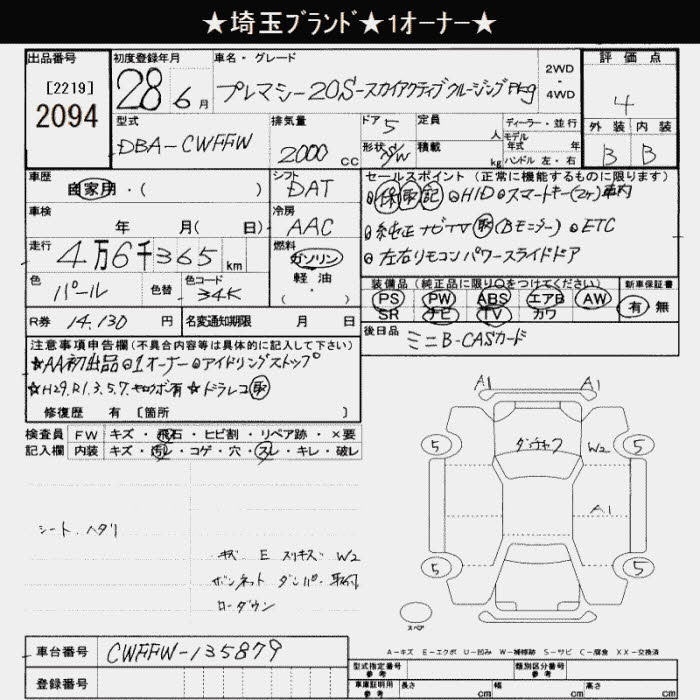 ★埼玉ブランド★1オーナー★
出品番号 初度登録年月 車名・グレード 2WD・4WD 評価点
[2219] 2094 28年6月 プレマシー20S-スカイアクティブクルージングPkg 4
型式 排気量 ドア 定員 人 ディーラー・並行 外装 内装
DBA-CWFFW 2000cc 5 形状 S/W 積載 kg モデル年式 年式 ハンドル 左・右 B B
車歴 シフト セールスポイント(正常に機能するものに限ります)
自家用・( ) DAT ◎保取記 ◎HID ◎スマートキー(2ヶ)車内
車検 冷房 ◎純正ナビTV取(Bモニター) ◎ETC
年 月( 日) AAC ◎左右リモコンパワースライドドア
走行 燃料
4万6千365km ガソリン 軽油 ・
装備品(純正品に限り○をつけてください) 新車保証書
色 パール 色替 色コード 34K ( )
PS PW ABS エアB AW 有 無
SR ナビ TV カワ
R券 14,130円 名変通知期限 月 日
後日品 ミニB-CASカード
注意事項申告欄(不具合内容等は具体的に記入して下さい)
★AA初出品◎1オーナー◎アイドリングストップ
★H29.R1.3.5.7.セロクボ有★ドラレコ取
修復歴 有 [箇所 ]
検査員 FW キズ・飛石・ヒビ割・リペア跡・×要
記入欄 内装 キズ・汚レ・コゲ・穴・スレ・キレ・破レ
シート ヘタリ
キズ E スリキズ W2
ボンネット ダンパー 取付
ローダウン
A1 A1
5 ダウキフ W2 5
A1
5 5
スペア
A-キズ E-エクボ U-凹み W-補修跡 S-サビ C-腐食 XX-交換済
車台番号 CWFFW-135879
登録番号
型式指定番号 参考 類別区分番号 参考
車庫証明用 参考 長さ cm 幅 cm 高さ cm